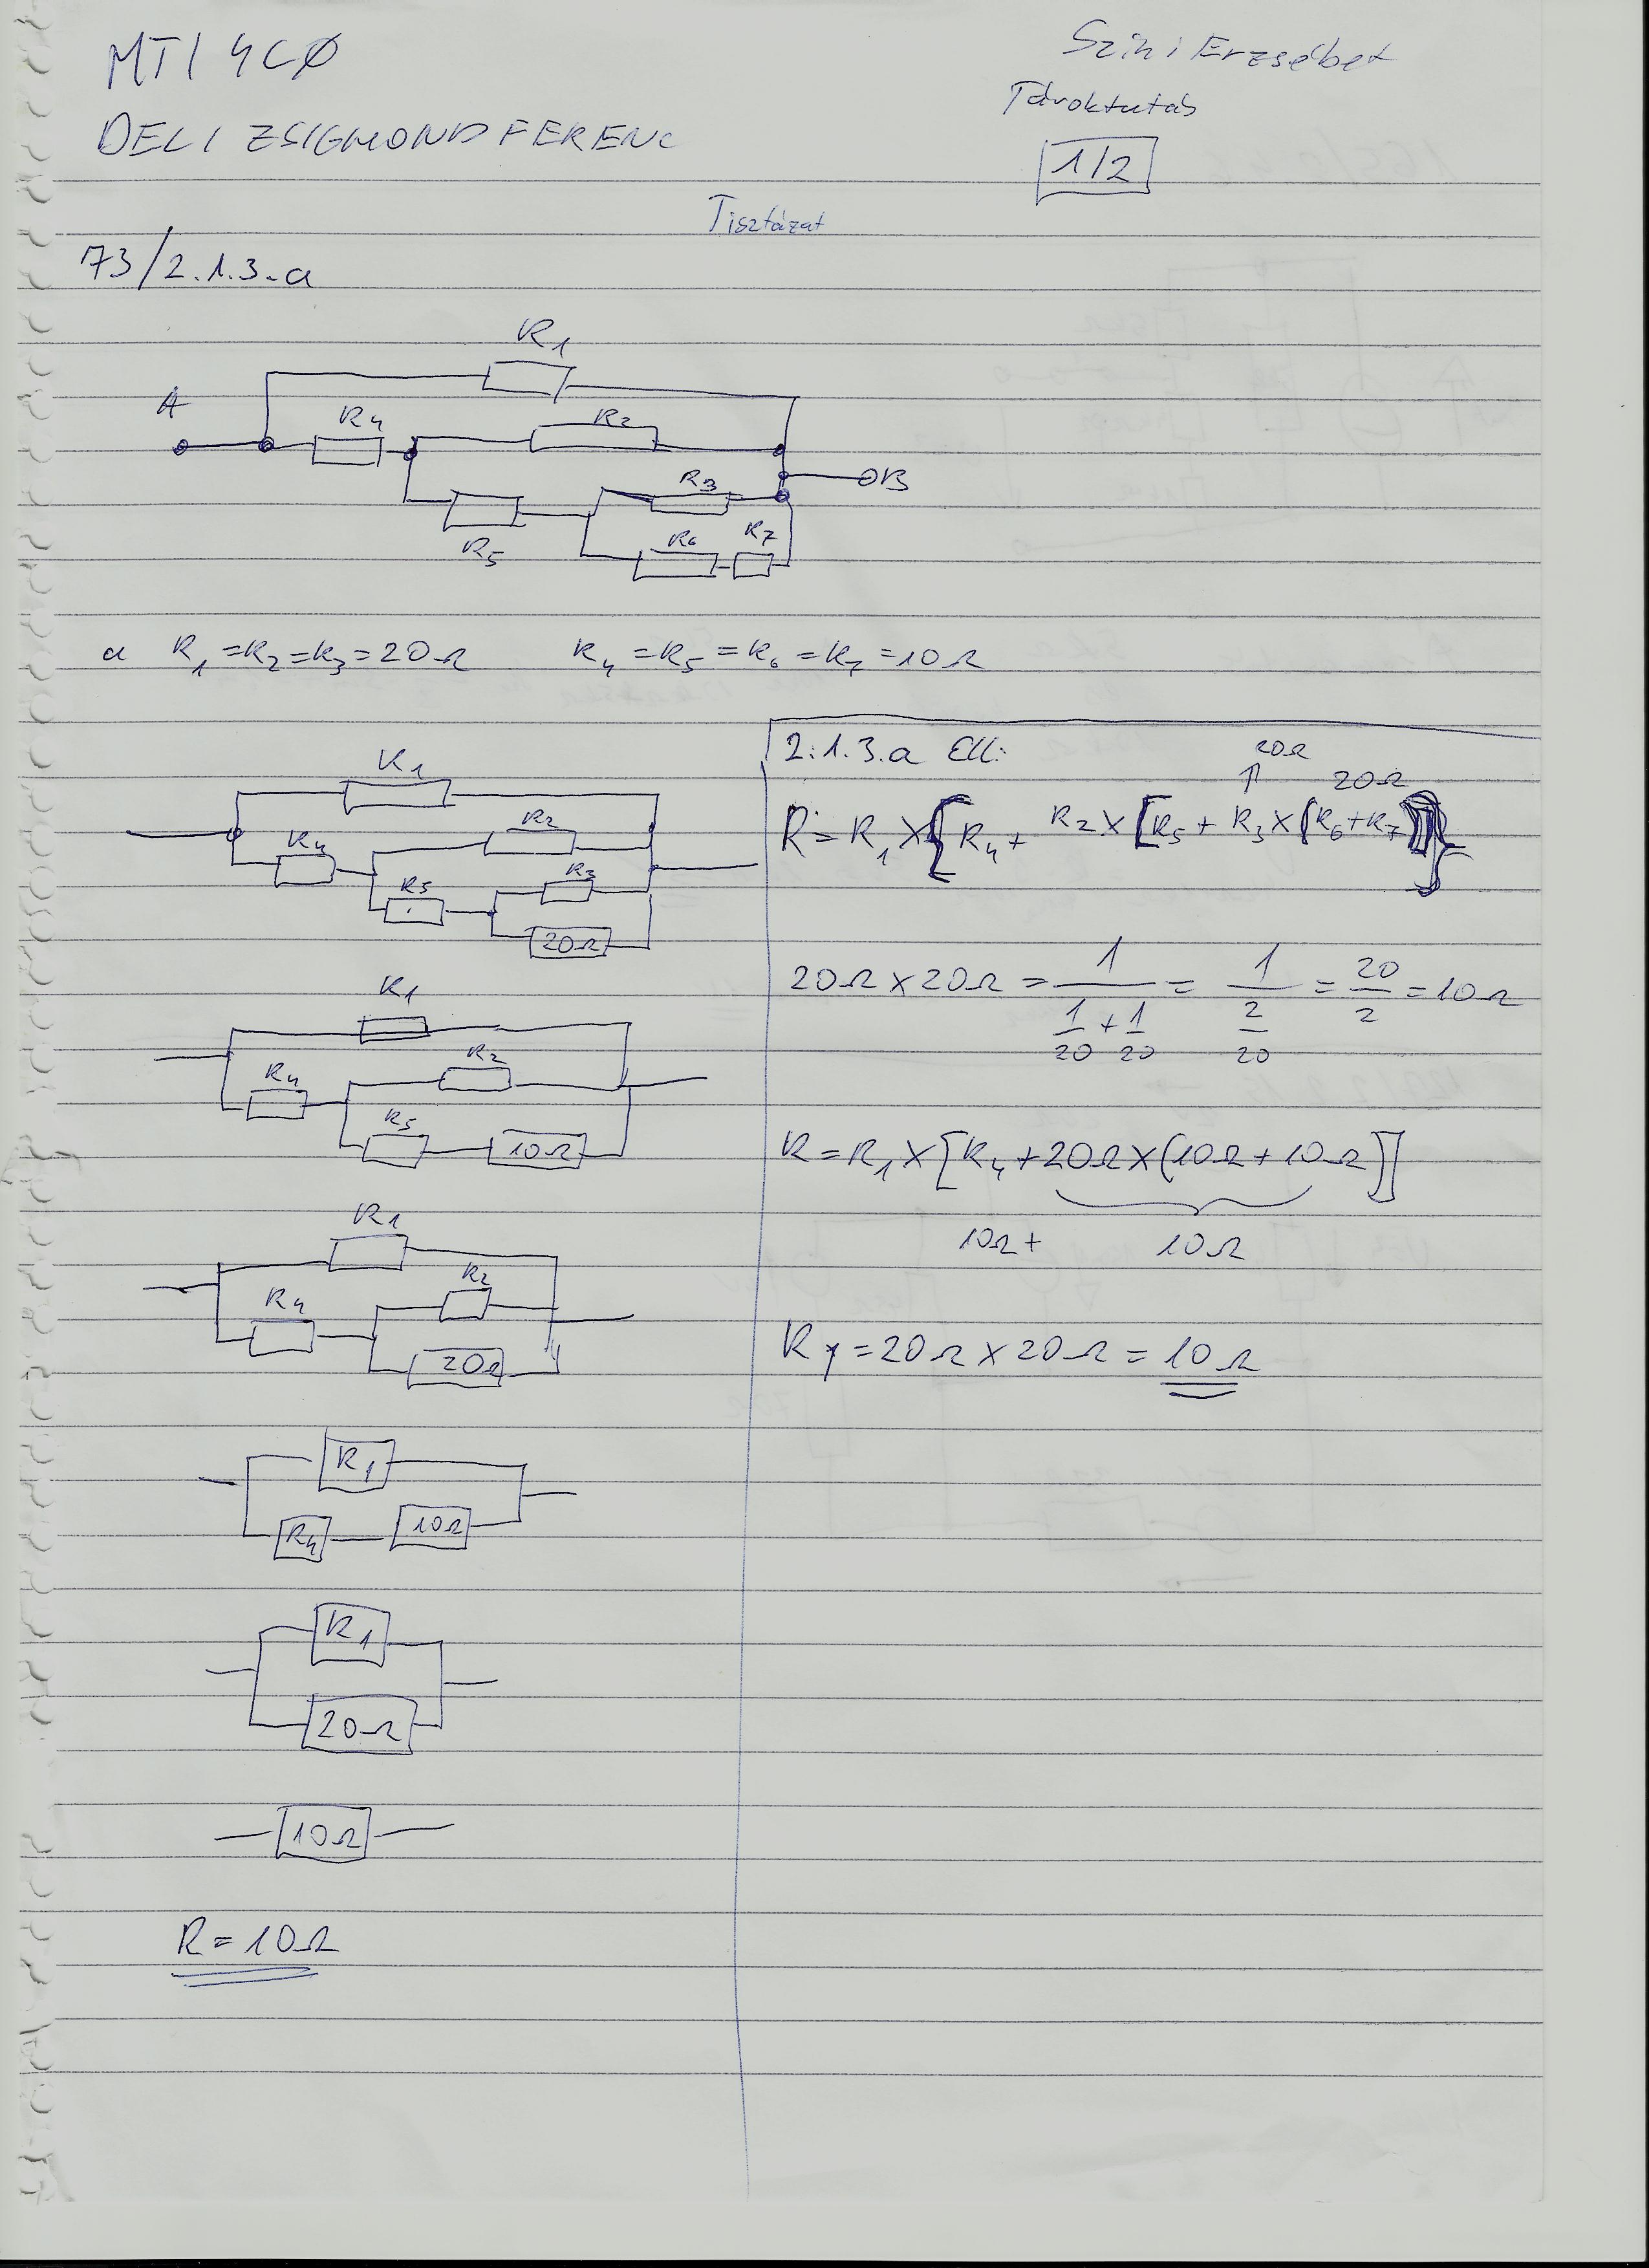 MTI4CØ
DELI ZSIGMOND FERENC
Szini Erzsébet
Távoktatás
1/2
Tisztázat
73/2.1.3.a
R1
A
R4
R2
B
R3
R5
R6
R7
a R1=R2=R3=20Ω R4=R5=R6=R7=10Ω
R1
R4
R2
R5
R3
20Ω
R1
R4
R2
R5
10Ω
R1
R4
R2
20Ω
R1
R4
10Ω
R1
20Ω
10Ω
R=10Ω
2.1.3.a Ell:
20Ω
↑ 20Ω
R=R1×{R4+R2×[R5+R3×(R6+R7)]}
20Ω×20Ω=1/(1/20+1/20)=1/(2/20)=20/2=10Ω
R=R1×[R4+20Ω×(10Ω+10Ω)]
10Ω+ 10Ω
R1=20Ω×20Ω=10Ω